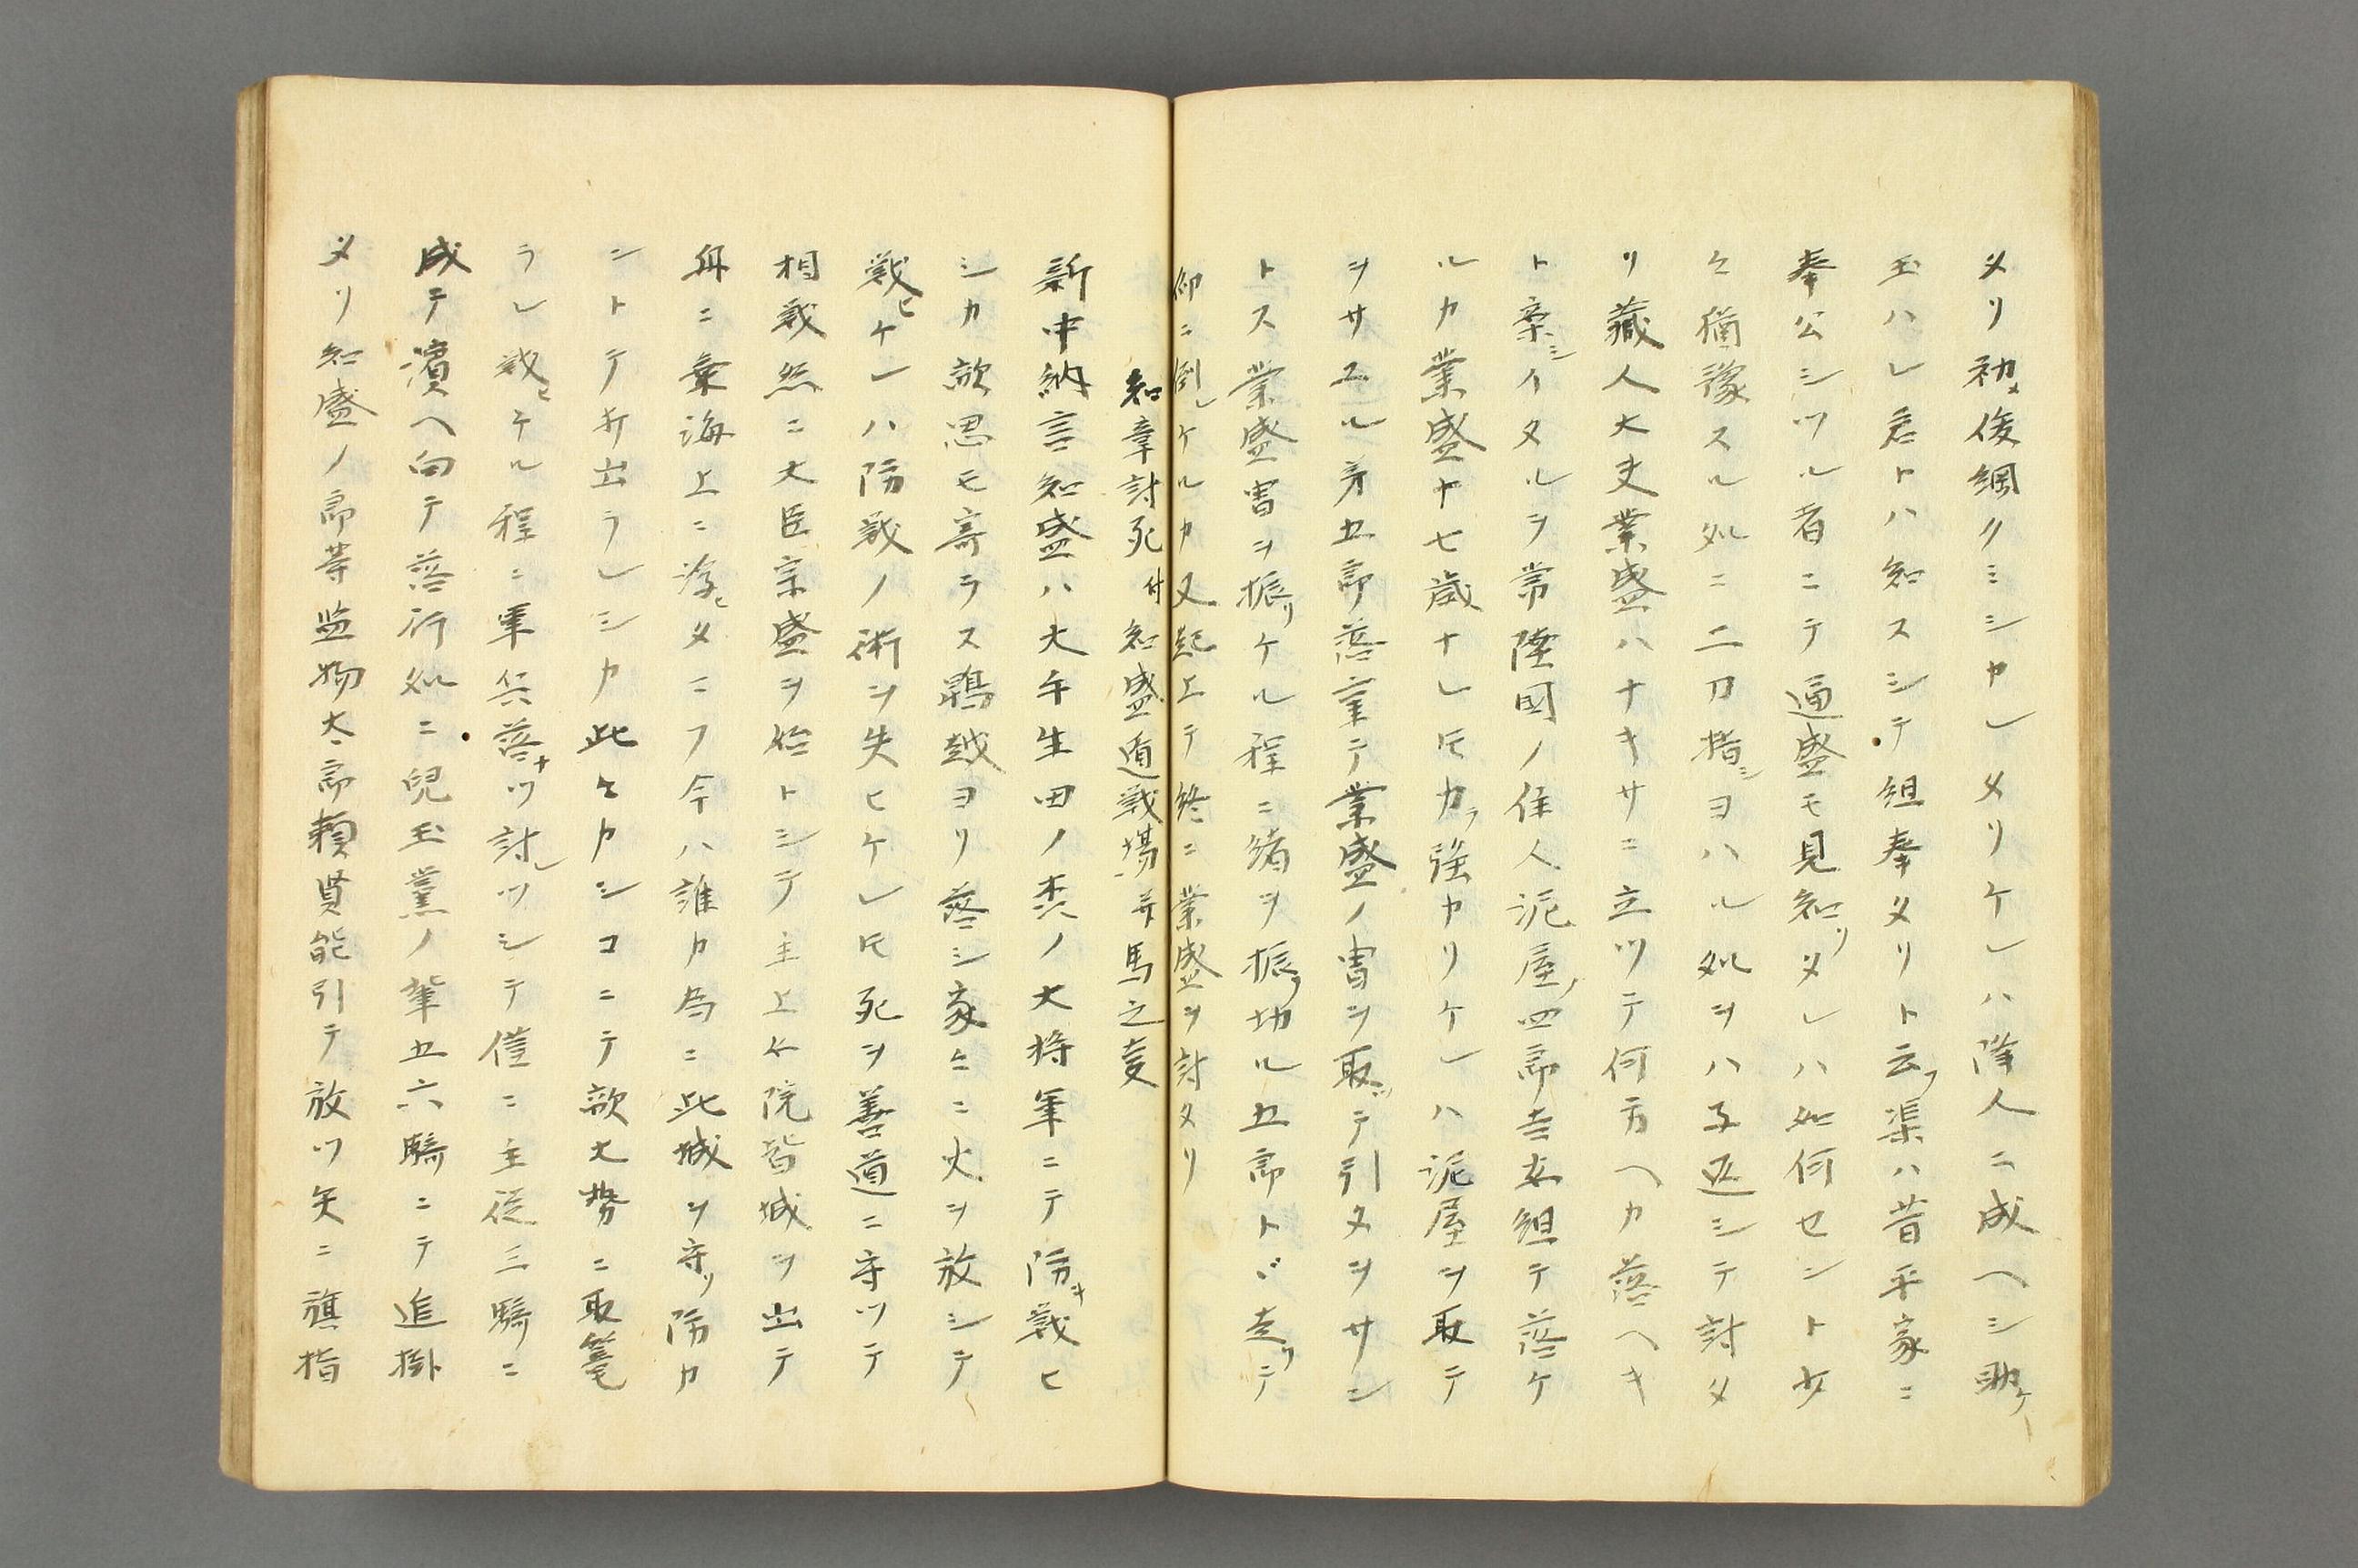 メリ初メ俊綱クミシカレメリケレハ降人ニ成ヘシ助ケ
玉ハレ君トハ知スシテ組奉タリト云フ渠ハ昔平家ニ
奉公シツル者ニテ通盛モ見知リメレハ如何セント少
々猶豫スル処ニ二刀指シヨハル処ヲハ子返シテ討メ
リ藏人大夫業盛ハナキサニ立ツテ何方ヘカ落ヘキ
トイタルヲ常陸國ノ住人泥屋ノ四郎吉安組テ落ケ
ルカ業盛十七歳ナレ𪜈カラ強カリケレハ泥屋ヲ取テ
ヲサユル弟五郎落重テ業盛ノ冑ヲ取ツテ引タヲサン
トス業盛冑ヲ振リケル程ニ緒ヲ振フ切ル五郎トバ走リテ
仰ニ倒レケルカ又起上テ終ニ業盛ヲ討タリ
知章討死付知盛遁戦場并馬之㕝
新中納言知盛ハ大手生田ノ森ノ大将軍ニテ防キ戦ヒ
シカ敵思モ寄ラス鵯越ヨリ落シ家々ニ火ヲ放シテ
戦ヒケレハ防戦ノ術ヲ失ヒケレ𪜈死ヲ善道ニ守ツテ
相戦然ニ大臣宗盛ヲ始トシテ主上々院皆城ヲ出テ
舟ニ乗海上ニ浮ヒタニフ今ハ誰カ為ニ此城ヲ守リ防カ
ントテキ出ラレシカ此ヤカシコニテ敵大勢ニ取篭
ラレ戦ヒケル程ニ軍兵落ナツ討レツシテ僅ニ主従三騎ニ
成テ濱ヘ向テ落行処ニ兒玉黨ノ輩五六騎ニテ追掛
メリ知盛ノ郎等監物太郎頼賢能引テ放ツ矢ニ旗指